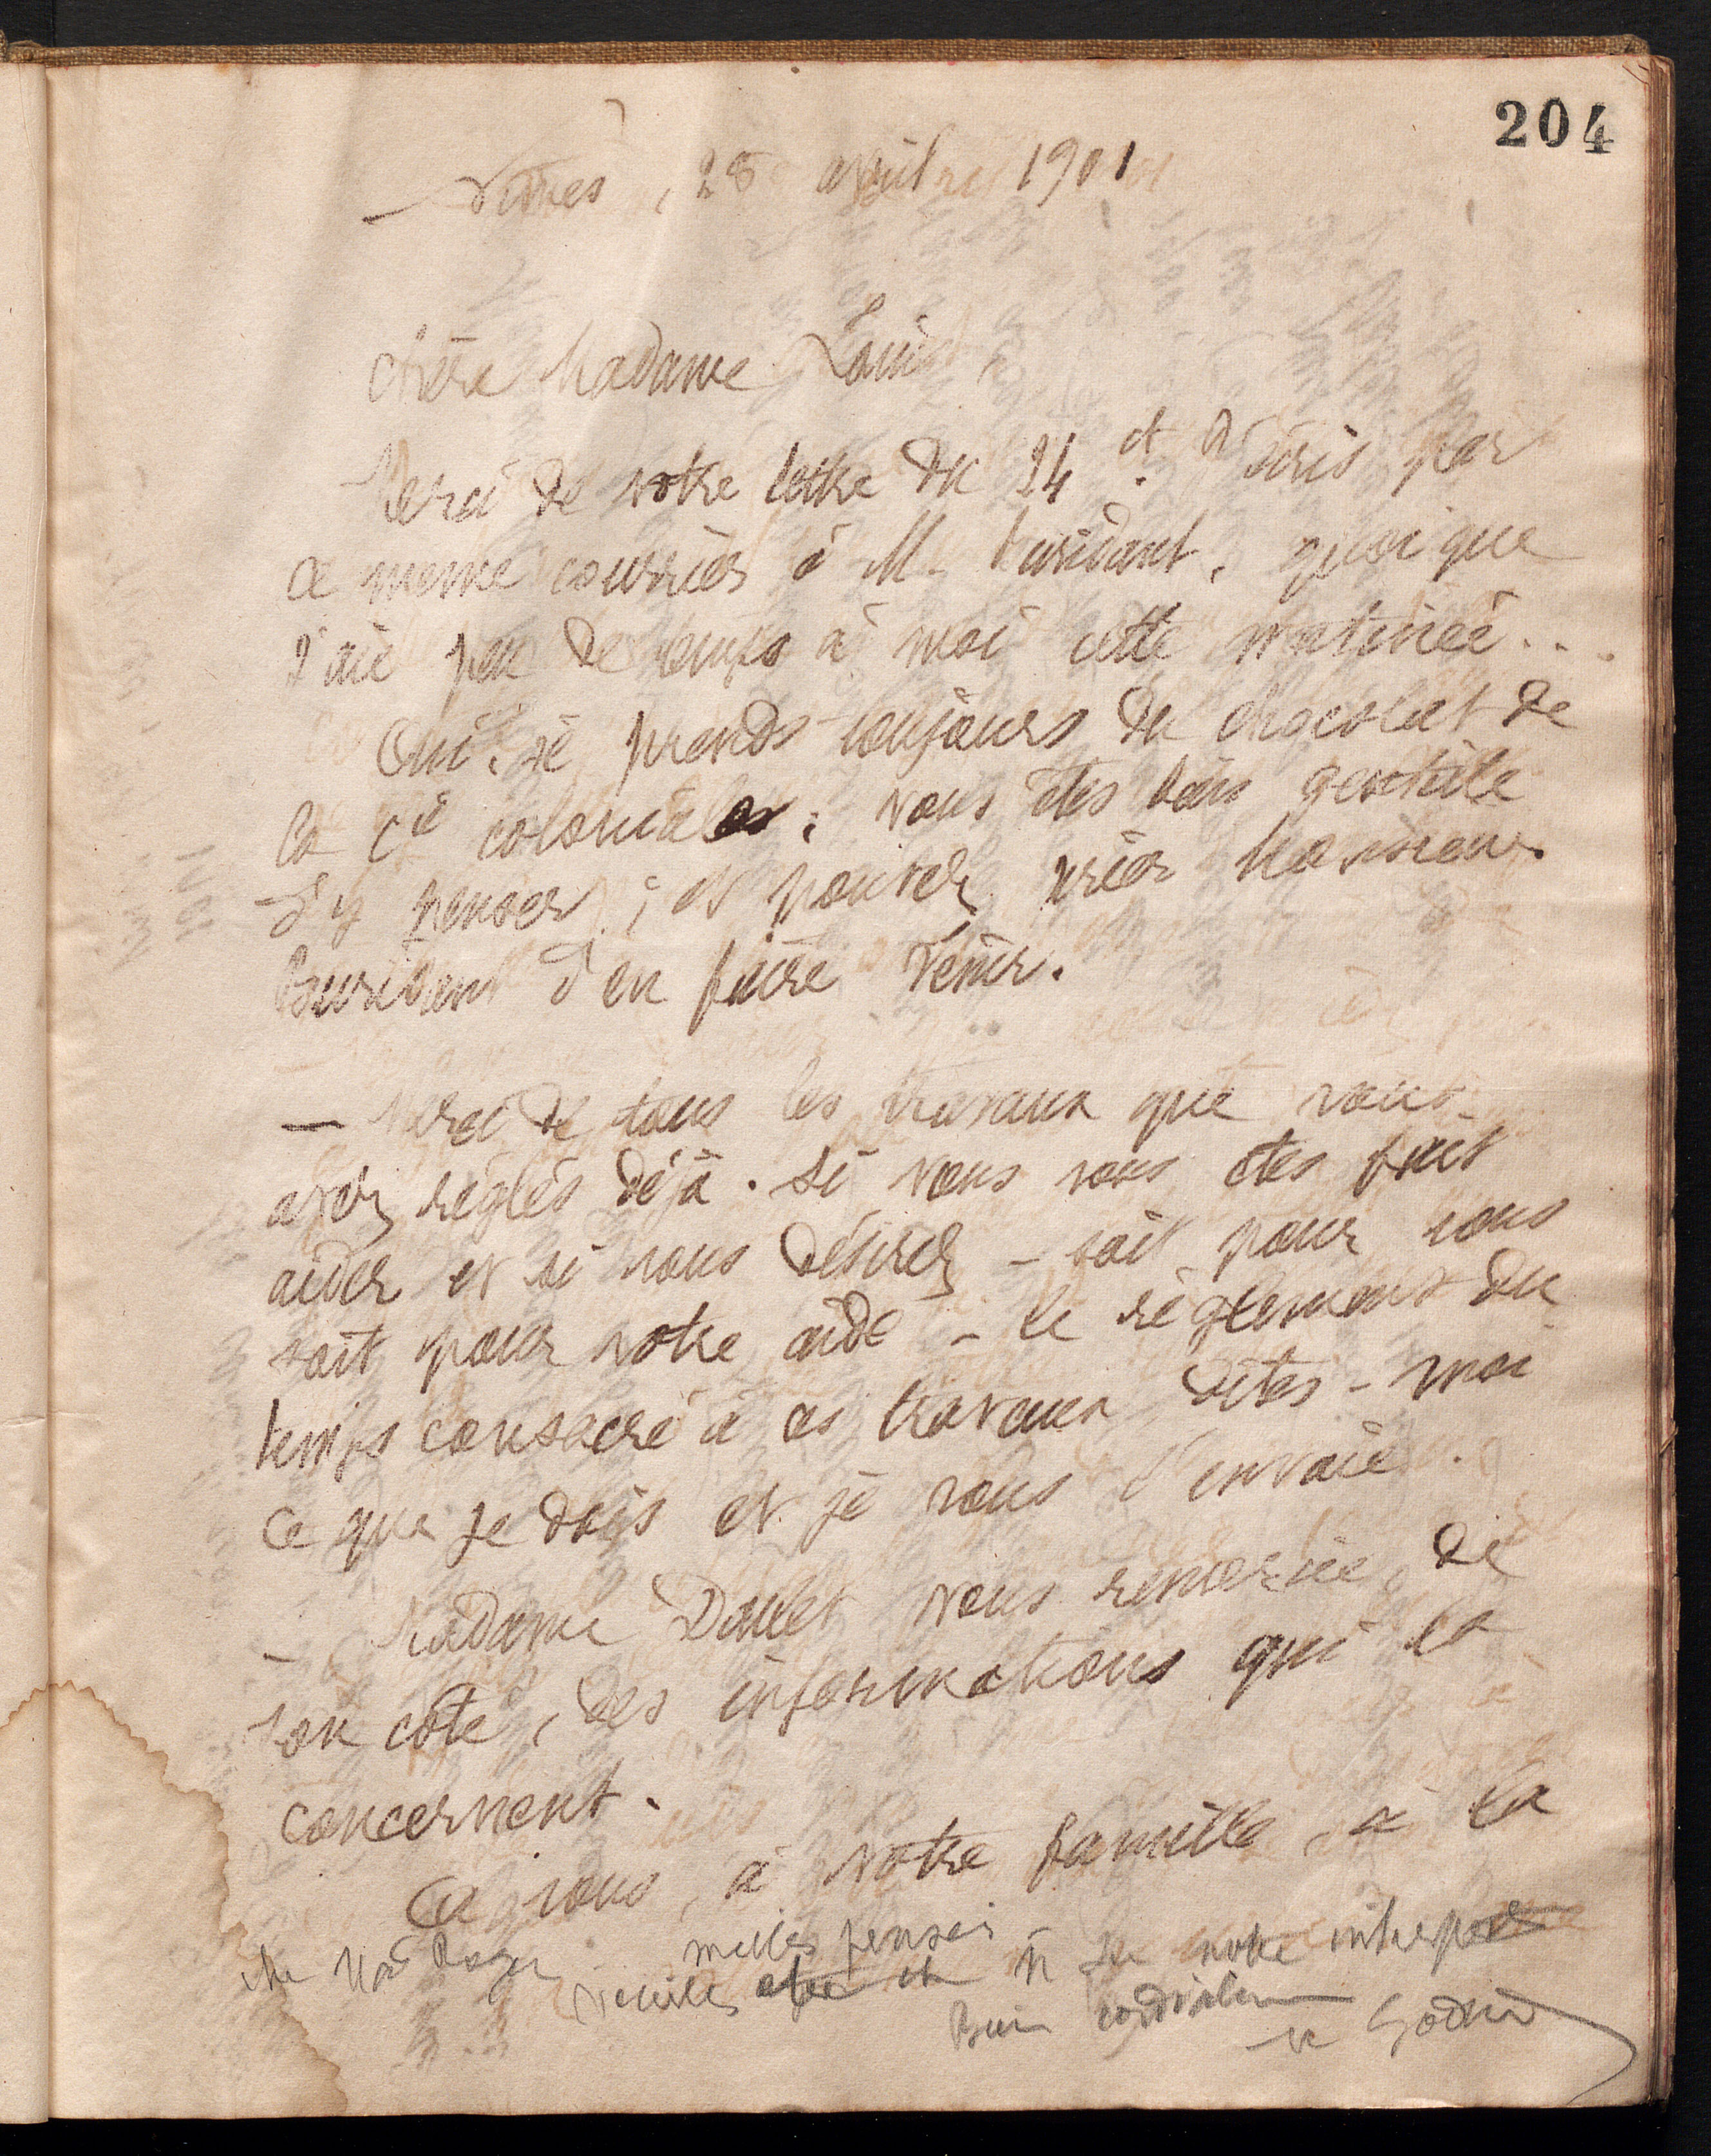 204
Nîmes, 28 avril 1901
Chère Madame Louis,
Merci de votre lettre du 24 ct. J'écris par
ce même courrier à M. Buridant, quoique
j'aie peu de temps à moi cette matinée...
Oui, je prends toujours du chocolat de
la Cie coloniale; vous êtes bien gentille
d'y penser; et pouvez prier Monsieur
Buridant d'en faire venir.
— Merci de tous les travaux que vous
avez réglés déjà. Si vous vous êtes fait
aider et si vous désirez - soit pour vous
soit pour votre aide - le règlement du
temps consacré à ces travaux dites-moi
ce que je dois et je vous l'envoie.
- Madame Doulet vous remercie, de
son côté, des informations qui la
concernent.
A vous, à votre famille, à la
chère Mad Roger milles pensées
veuillez être notre interprète
Bien cordialement
Godin